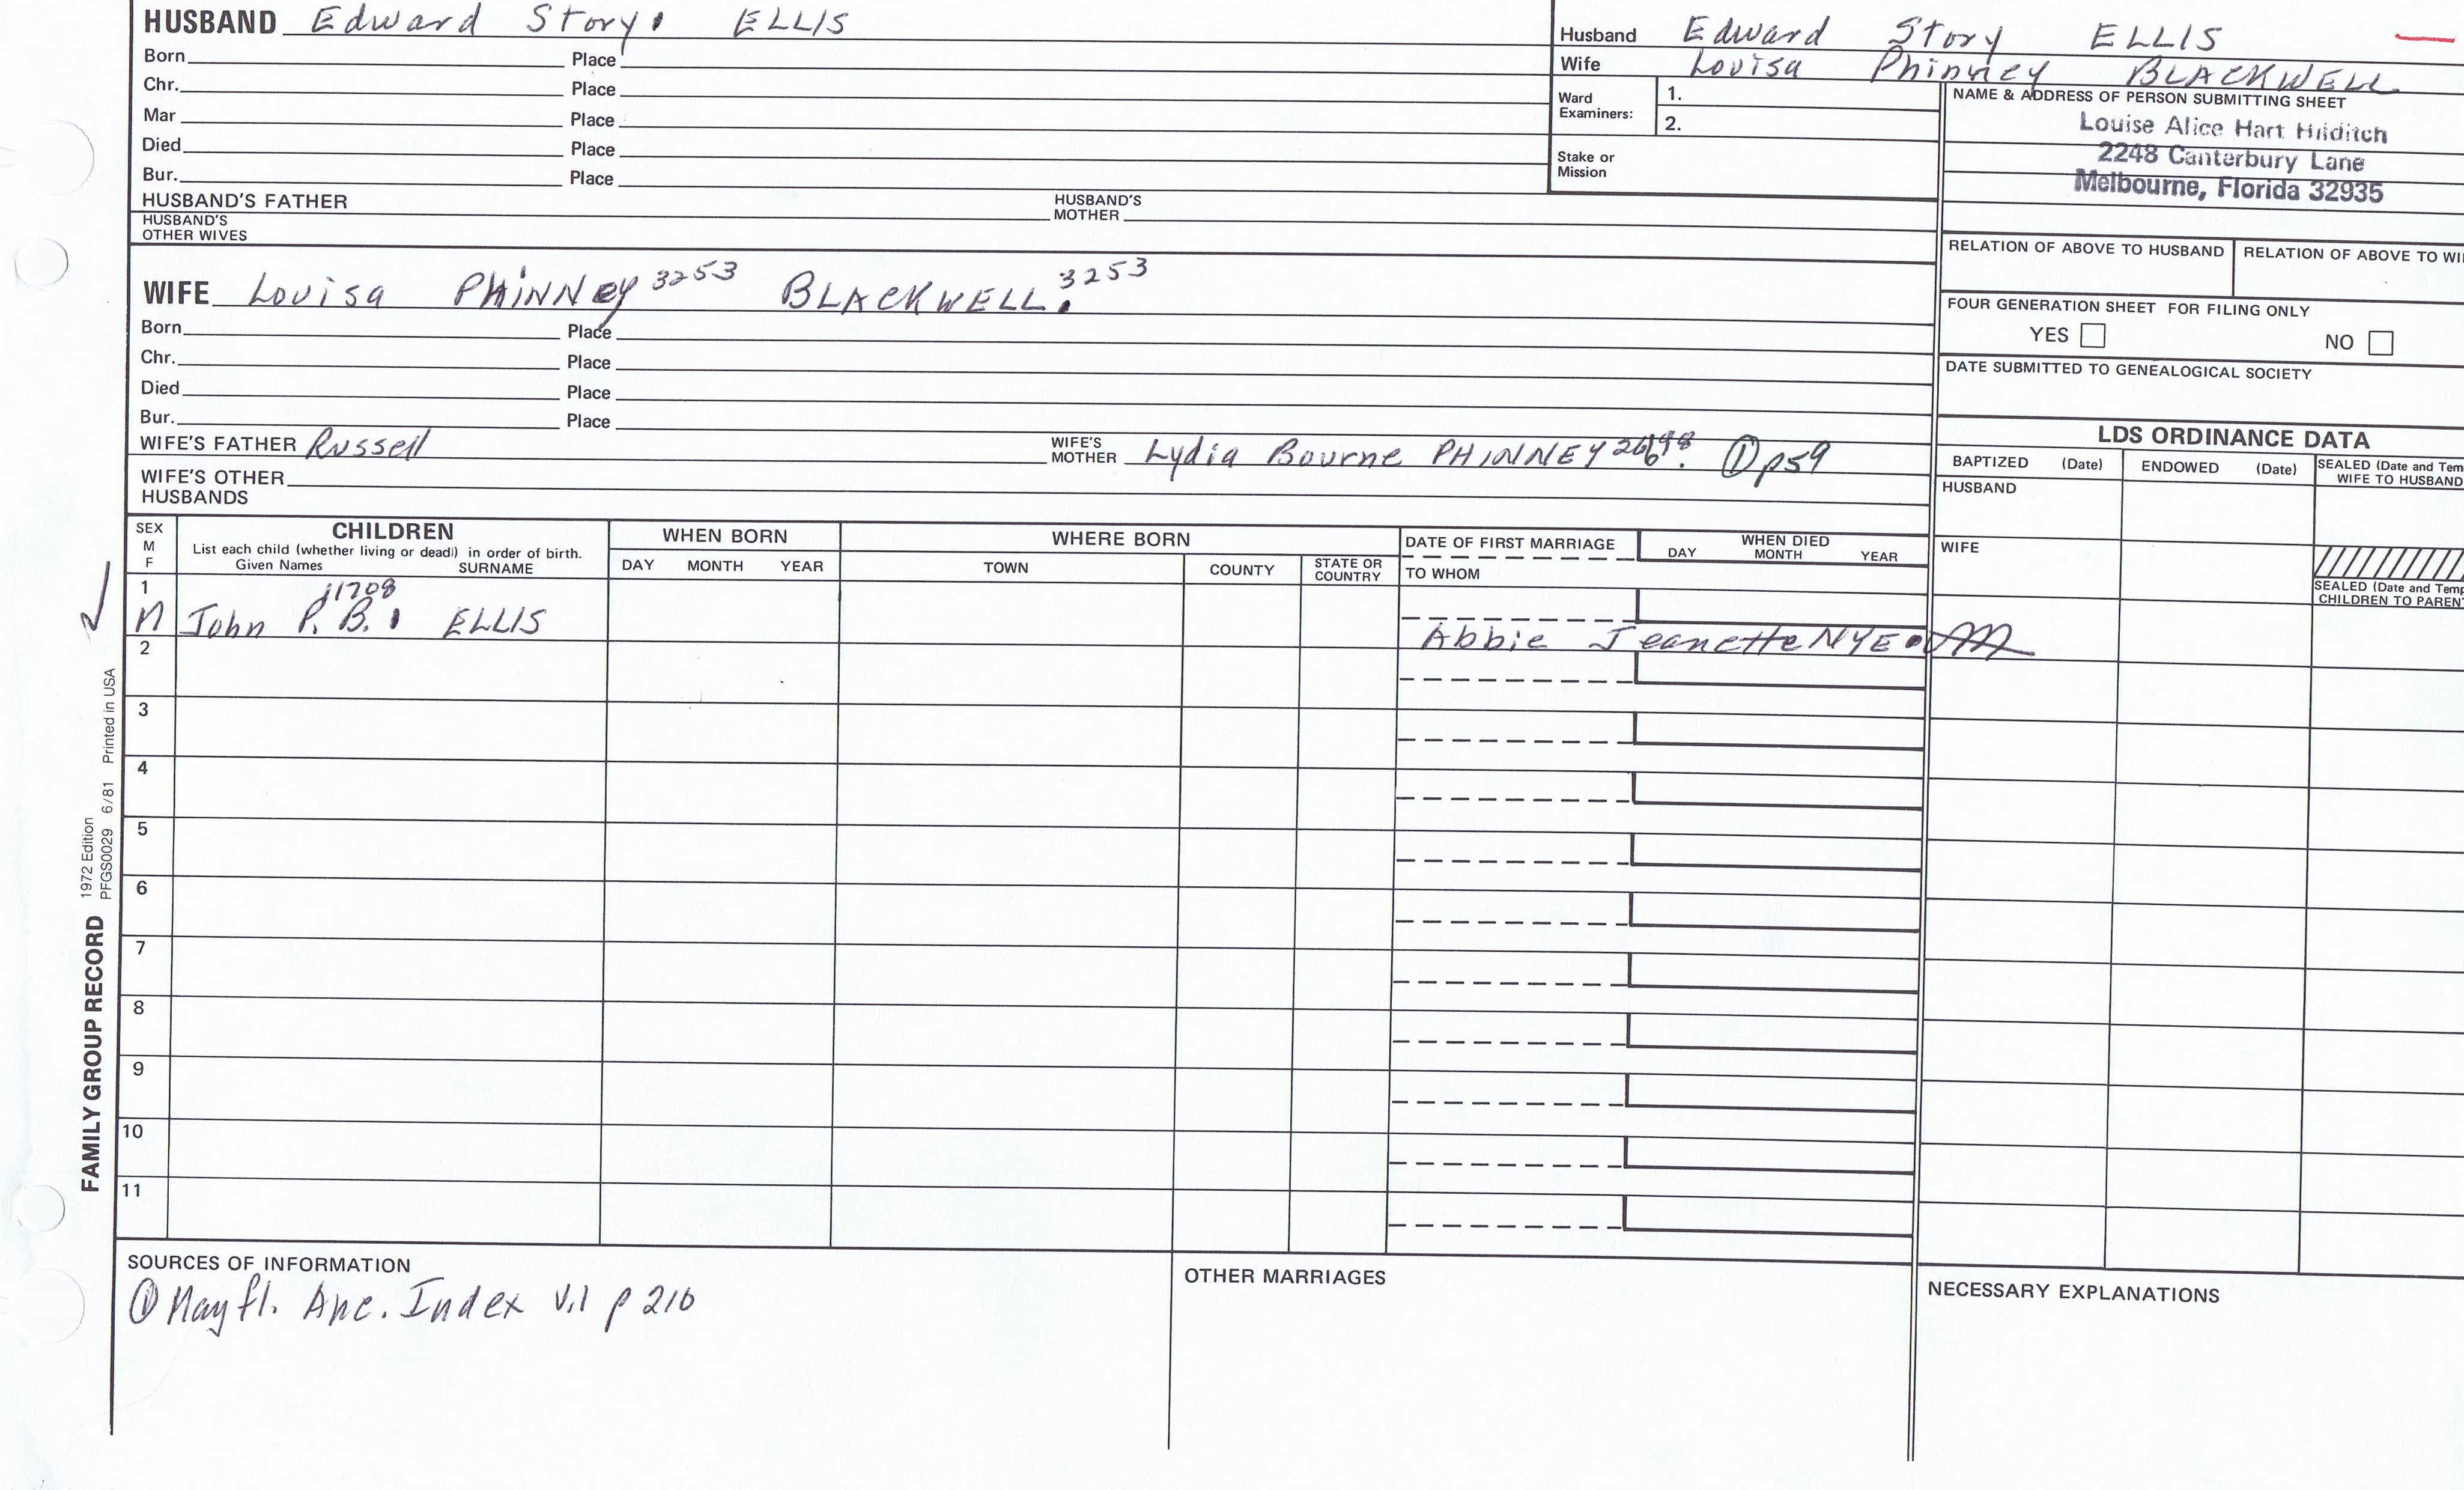 HUSBAND Edward Story. ELLIS
Born Place
Chr. Place
Mar Place
Died Place
Bur. Place
HUSBAND'S FATHER HUSBAND'S MOTHER
HUSBAND'S OTHER WIVES
Husband Edward Story ELLIS
Wife Louisa Phinney BLACKWELL
Ward Examiners: 1.
2.
Stake or Mission
NAME & ADDRESS OF PERSON SUBMITTING SHEET
Louise Alice Hart Hilditch
2248 Canterbury Lane
Melbourne, Florida 32935
RELATION OF ABOVE TO HUSBAND RELATION OF ABOVE TO WI
FOUR GENERATION SHEET FOR FILING ONLY
YES NO
DATE SUBMITTED TO GENEALOGICAL SOCIETY
WIFE Louisa PHINNEY 3253 BLACKWELL. 3253
Born Place
Chr. Place
Died Place
Bur. Place
WIFE'S FATHER Russell WIFE'S MOTHER Lydia Bourne PHINNEY ① p59
WIFE'S OTHER HUSBANDS
LDS ORDINANCE DATA
BAPTIZED (Date) ENDOWED (Date) SEALED (Date and Tem
WIFE TO HUSBAND
HUSBAND
WIFE
SEALED (Date and Temp
CHILDREN TO PAREN
SEX M F
CHILDREN
List each child (whether living or dead) in order of birth.
Given Names SURNAME
WHEN BORN
DAY MONTH YEAR
WHERE BORN
TOWN COUNTY STATE OR COUNTRY
DATE OF FIRST MARRIAGE
TO WHOM
WHEN DIED
DAY MONTH YEAR
1 M John P. B. ELLIS Abbie Jeanette NYE
2
3
4
5
6
7
8
9
10
11
FAMILY GROUP RECORD 1972 Edition
PFGS0029 6/81 Printed in USA
SOURCES OF INFORMATION
① Mayfl. Anc. Index V.1 p 210
OTHER MARRIAGES
NECESSARY EXPLANATIONS